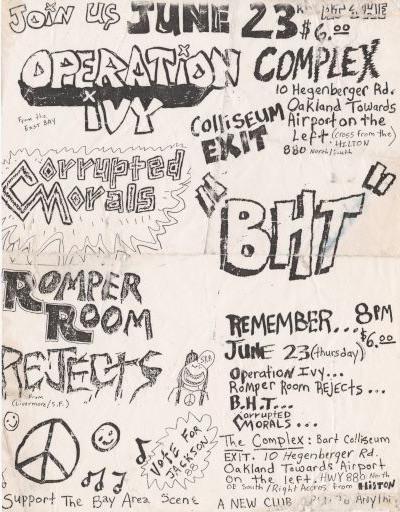 JOIN US JUNE 23
$6.00
OPERATION
IVY
From the
EAST BAY
COMPLEX
10 Hegenberger Rd.
Oakland Towards
Airport on the
Left (cross from the)
HILTON
880 North/South
Colliseum
EXIT
Corrupted
Morals
"BHT"
ROMPER
ROOM
REJECTS
From
(Livermore/S.F.)
REMEMBER... 8PM
JUNE 23 (thursday) $6.00
Operation Ivy...
Romper Room REJECTS...
B.H.T...
Corrupted
MORALS...
The Complex: Bart Colliseum
EXIT. 10 Hegenberger Rd.
Oakland Towards Airport
on the left. HWY 880 North
or South/Right Across from HILSTON
A NEW CLUB
VOTE FOR
JACKSON
88
Support The Bay Area Scene